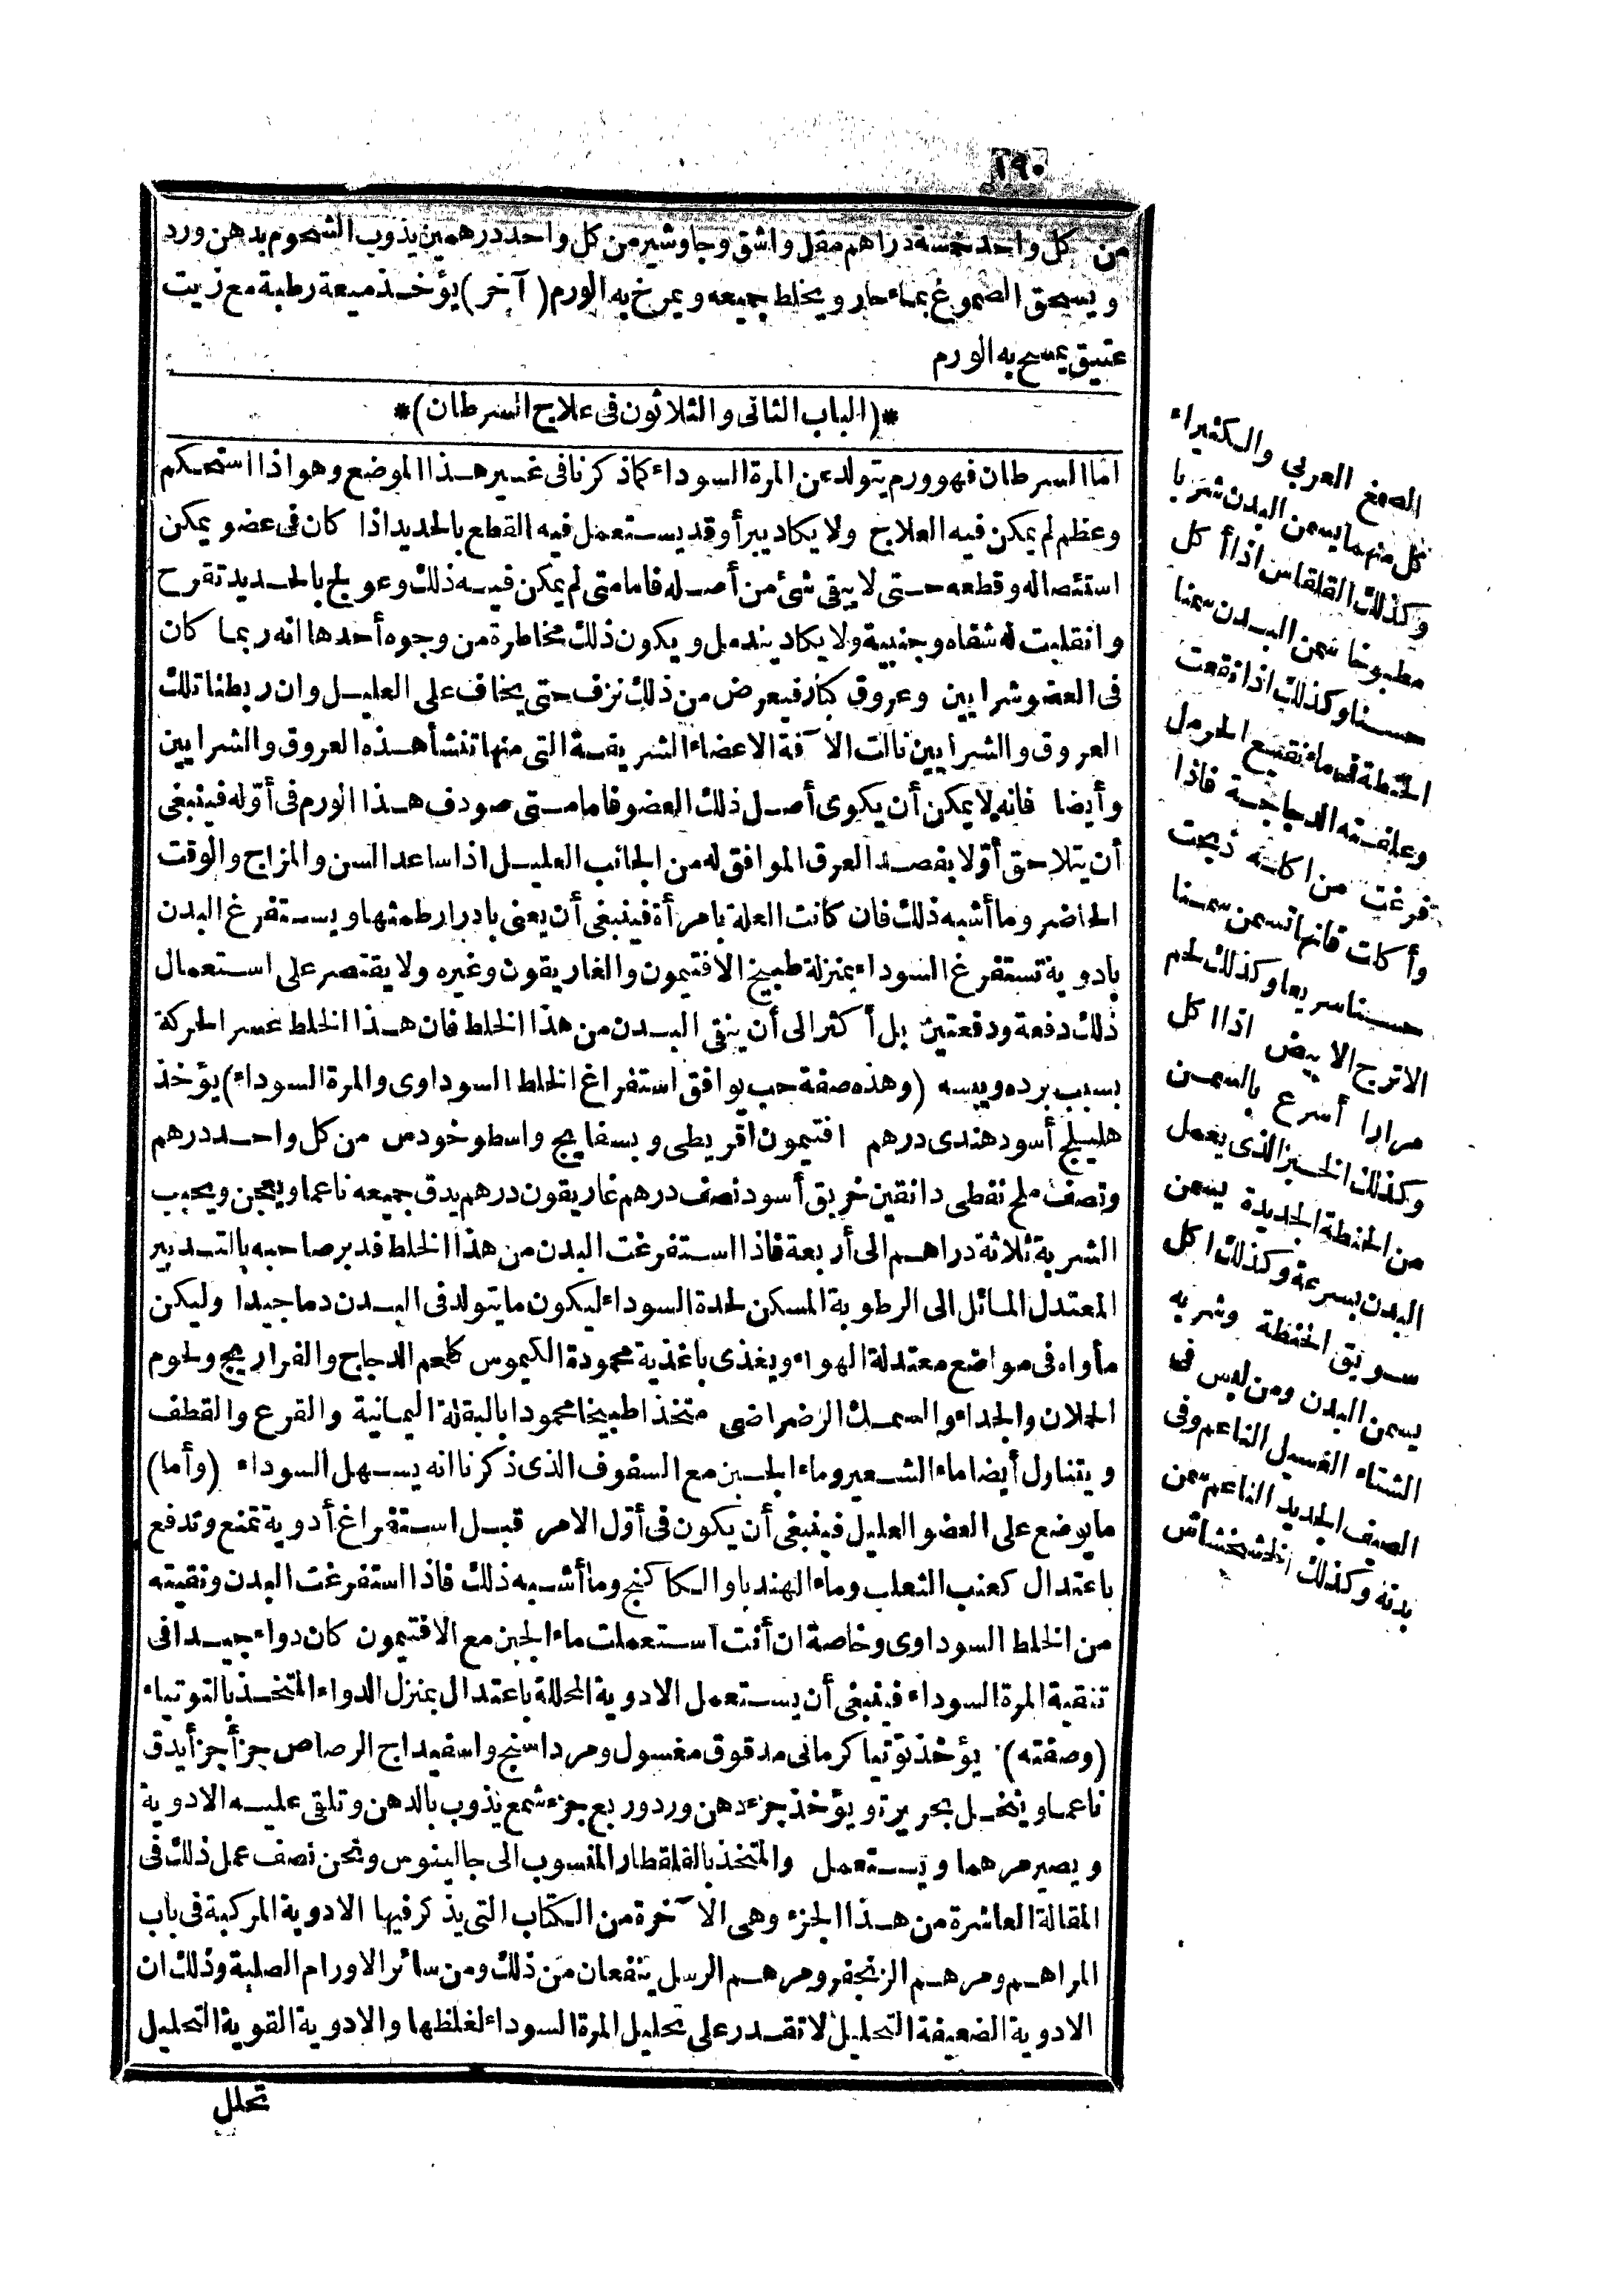 ١٩٠
من كل واحد خمسة دراهم مقل واشق وجاوشير من كل واحد درهمين يذوب الشحوم بدهن ورد
ويسحق الصموغ بماء حار ويخلط جميعه ويمرخ به الورم (آخر) يؤخذ ميعة رطبة مع زيت
عتيق يمسح به الورم
*(الباب الثانى والثلاثون فى علاج السرطان)*
اما السرطان فهو ورم يتولد عن المرة السوداء كما ذكرنا فى غير هذا الموضع وهو اذا استحكم
وعظم لم يمكن فيه العلاج ولا يكاد يبرأ وقد يستعمل فيه القطع بالحديد اذا كان فى عضو يمكن
استئصاله وقطعه حتى لا يبقى شئ من أصله فاما متى لم يمكن فيه ذلك وعولج بالحديد تقرح
وانقلبت له شفاه وجنبية ولا يكاد يندمل ويكون ذلك مخاطرة من وجوه أحدها انه ربما كان
فى العضو شرايين وعروق كبار فيعرض من ذلك نزف حتى يخاف على العليل وان ربطنا تلك
العروق والشرايين نالت الآفة الاعضاء الشريفة التى منها تنشأ هذه العروق والشرايين
وأيضا فانه لا يمكن أن يكوى أصل ذلك العضو فاما متى صودف هذا الورم فى أوّله فينبغى
أن يتلاحق أوّلا بفصد العرق الموافق له من الجانب العليل اذا ساعد السن والمزاج والوقت
الحاضر وما أشبه ذلك فان كانت العلة بامرأة فينبغى أن يعنى بادرار طمثها ويستفرغ البدن
بادوية تستفرغ السوداء بمنزلة طبيخ الافتيمون والغاريقون وغيره ولا يقتصر على استعمال
ذلك دفعة ودفعتين بل أكثر الى أن ينقى البدن من هذا الخلط فان هذا الخلط عسر الحركة
بسبب برده ويبسه (وهذه صفة حب يوافق استفراغ الخلط السوداوى والمرة السوداء) يؤخذ
هليلج أسود هندى درهم افتيمون اقريطى وبسفايج واسطوخودس من كل واحد درهم
ونصف ملح نفطى دانقين خربق أسود نصف درهم غاريقون درهم يدق جميعه ناعما ويعجن ويحبب
الشربة ثلاثة دراهم الى أربعة فاذا استفرغت البدن من هذا الخلط فدبر صاحبه بالتدبير
المعتدل المائل الى الرطوبة المسكن لحدة السوداء ليكون ما يتولد فى البدن دما جيدا وليكن
مأواه فى مواضع معتدلة الهواء ويغذى باغذية محمودة الكيموس كلحم الدجاج والفراريج ولحوم
الحملان والجداء والسمك الرضراضى متخذا طبيخا محمودا بالبقلة اليمانية والقرع والقطف
ويتناول أيضا ماء الشعير وماء الجبن مع السفوف الذى ذكرنا انه يسهل السوداء (وأما)
ما يوضع على العضو العليل فينبغى أن يكون فى أوّل الامر قبل استفراغ أدوية تمنع وتدفع
باعتدال كعنب الثعلب وماء الهندبا والكاكنج وما أشبه ذلك فاذا استفرغت البدن ونقيته
من الخلط السوداوى وخاصة ان أنت استعملت ماء الجبن مع الافتيمون كان دواء جيدا فى
تنقية المرة السوداء فينبغى أن يستعمل الادوية المحللة باعتدال بمنزل الدواء المتخذ بالتوتياء
(وصفته) يؤخذ توتيا كرمانى مدقوق مغسول ومرداسنج واسفيداج الرصاص جزأ جزأ يدق
ناعما وينخل بحريرة ويؤخذ جزء دهن ورد وربع جزء شمع يذوب بالدهن وتلقى عليه الادوية
ويصير مرهما ويستعمل والمتخذ بالقلقطار المنسوب الى جالينوس ونحن نصف عمل ذلك فى
المقالة العاشرة من هذا الجزء وهى الآخرة من الكتاب التى يذكر فيها الادوية المركبة فى باب
المراهم ومرهم الزنجفر ومرهم الرسل ينفعان من ذلك ومن سائر الاورام الصلبة وذلك ان
الادوية الضعيفة التحليل لا تقدر على تحليل المرة السوداء لغلظها والادوية القوية التحليل
تحلل
الصمغ العربي والكثيراء
كل منهما يسمن البدن شربا
وكذلك القلقاس اذا أكل
مطبوخا سمن البدن سمنا
حسنا وكذلك اذا نقعت
الحنطة فى ماء نقيع الحرمل
وعلفته الدجاجة فاذا
فرغت من اكله ذبحت
وأكلت فانها تسمن سمنا
حسنا سريعا وكذلك لحم
الاترج الابيض اذا اكل
مرارا أسرع بالسمن
وكذلك الخبز الذى يعمل
من الحنطة الجديدة يسمن
البدن بسرعة وكذلك اكل
سويق الحنطة وشربه
يسمن البدن ومن لبس فى
الشتاء الغسيل الناعم وفى
الصيف الجديد الناعم سمن
بدنه وكذلك الخشخاش